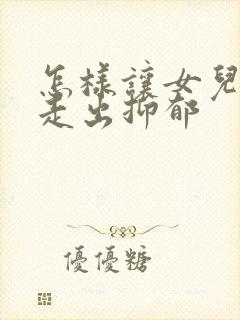 怎樣讓女兒
走出抑郁
優優糖